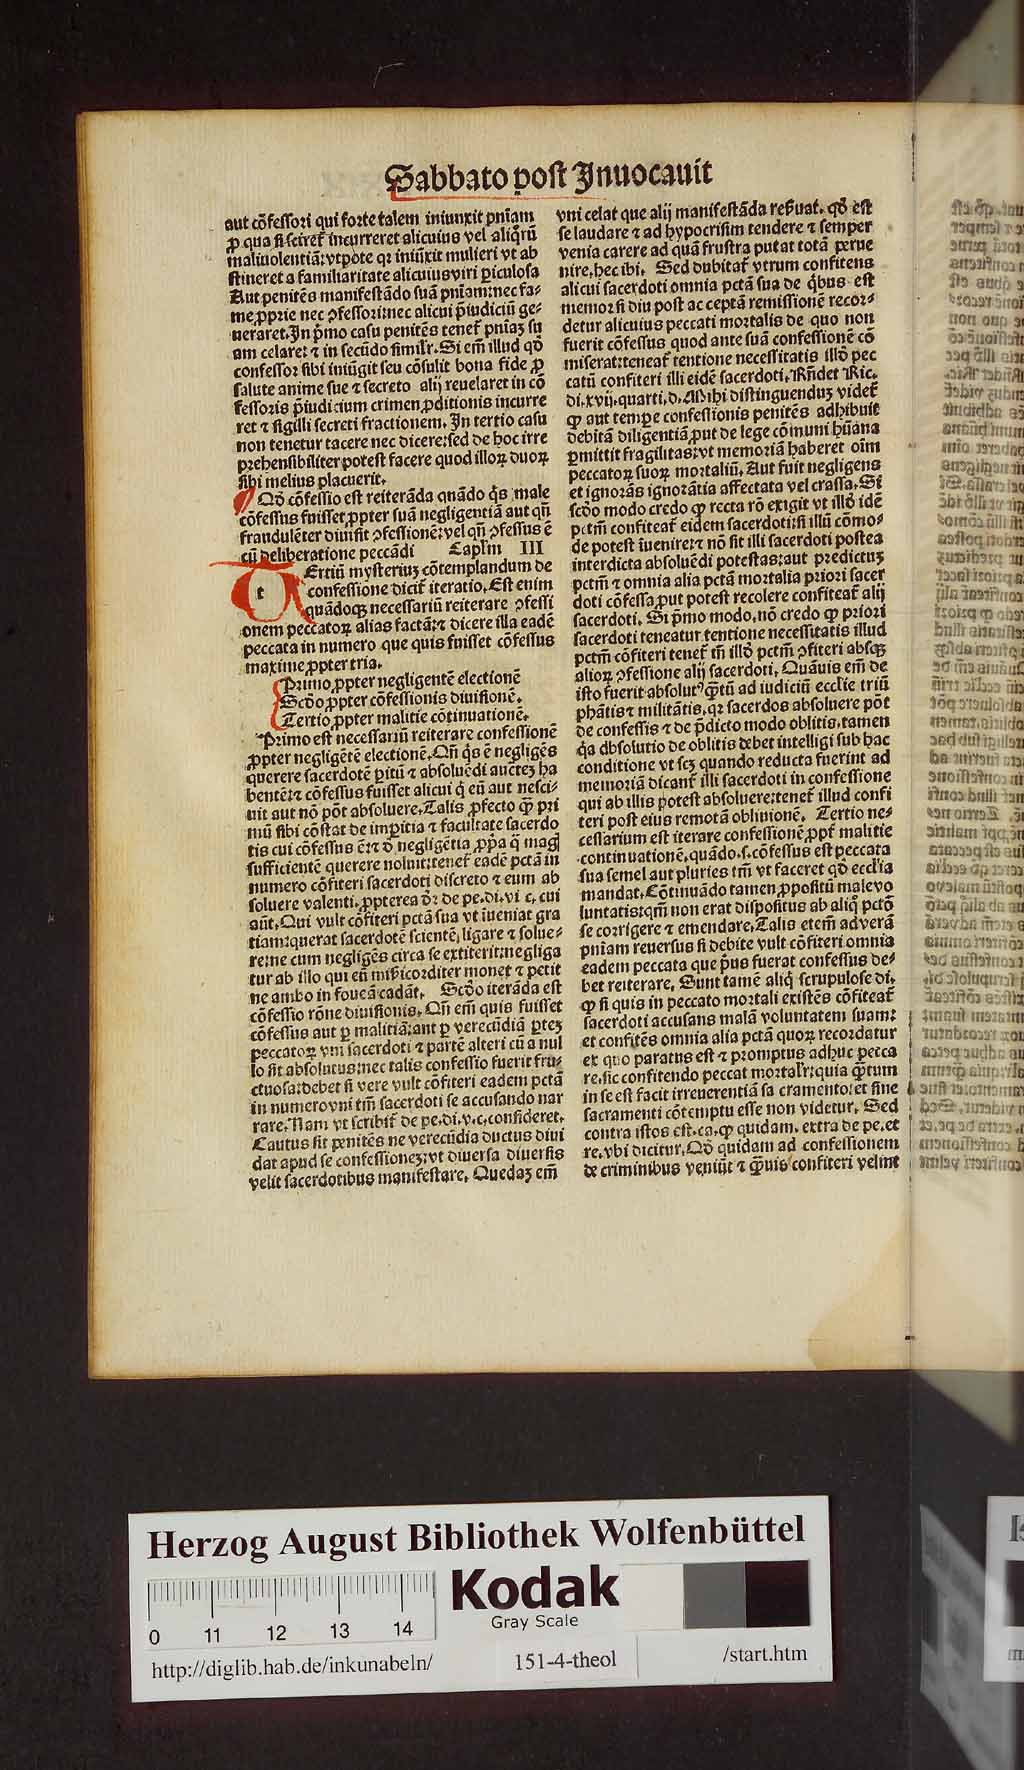 Sabbato post Inuocauit
aut cõfessori qui forte talem iniunxit pniam
ꝓ qua si sciret᷑ incurreret alicuius vel aliqͥrũ
maliuolentiã: vtpote qꝛ iniũxit mulieri vt ab
stineret a familiaritate alicuius viri ꝑiculosa
Aut penitẽs manifestãdo suã pniam: nec fa⸗
me ꝓprie nec ↄfessori: nec alicui p̃iudiciũ ge⸗
neraret. In pͥmo casu penitẽs tenet᷑ pniaꝫ su
am celare: ⁊ in secũdo similr̃. Si em̃ illud qđ
confessor sibi iniũgit seu cõsulit bona fide ꝓ
salute anime sue ⁊ secreto alij reuelaret in cõ
fessoris p̃iudicium crimen ꝓditionis incurre
ret ⁊ sigilli secreti fractionem. In tertio casu
non tenetur tacere nec dicere: sed de hoc irre
prehensibiliter potest facere quod illoꝝ duoꝝ
sibi melius placuerit.
Qđ cõfessio est reiterãda quãdo qͥs male
cõfessus fuisset ꝓpter suã negligentiã aut qñ
fraudulẽter diuisit ↄfessionẽ: vel qñ ↄfessus ẽ
cũ deliberatione peccãdi Caplm̃ III
t Ertiũ mysteriuꝫ cõtemplandum de
confessione dicit᷑ iteratio. Est enim
quãdoqꝫ necessariũ reiterare ↄfessi
onem peccatoꝝ alias factã: ⁊ dicere illa eadẽ
peccata in numero que quis fuisset cõfessus
maxime ꝓpter tria.
Primo ꝓpter negligentẽ electionẽ
Scđo ꝓpter cõfessionis diuisionẽ.
Tertio ꝓpter malitie cõtinuationẽ.
Primo est necessariũ reiterare confessionẽ
ꝓpter negligẽtẽ electionẽ. Qñ qͥs ẽ negligẽs
querere sacerdotẽ ꝑitũ ⁊ absoluẽdi aucteꝫ ha
bentẽ: ⁊ cõfessus fuisset alicui qͥ eũ aut nesci⸗
uit aut nõ põt absoluere. Talis ꝓfecto qꝫ pri
mũ sibi cõstat de imperitia ⁊ facultate sacerdo
tis cui cõfessus ẽ: ⁊ ꝺ negligẽtia ꝓpͥa qͥ magͥ
sufficientẽ querere noluit: tenet᷑ eadẽ pctã in
numero cõfiteri sacerdoti discreto ⁊ eum ab
soluere valenti. ꝓpterea dꝛ̃ de pe. di. vi c. cui
aũt. Qui vult cõfiteri pctã sua vt inueniat gra
tiam: querat sacerdotẽ scientẽ ligare ⁊ solue⸗
re: ne cum negligẽs circa se extiterit: negliga
tur ab illo qui eũ mĩsicorditer monet ⁊ petit
ne ambo in foueã cadãt. Scđo iterãda est
cõfessio rõne diuisionis. Qñ em̃ quis fuisset
cõfessus aut ꝑ malitiã: aut ꝑ verecũdiã ꝑteꝫ
peccatoꝝ vni sacerdoti ⁊ partẽ alteri cũ a nul
lo sit absolutus: nec talis confessio fuerit fru⸗
ctuosa: debet si vere vult cõfiteri eadem pctã
in numero vni tm̃ sacerdoti se accusando nar
rare. Nam vt scribit᷑ de pe. di. v. c. consideret.
Cautus sit penitẽs ne verecũdia ductus diui
dat apud se confessioneꝫ: vt diuersa diuersis
velit sacerdotibus manifestare. Quedaꝫ em̃
vni celat que alij manifestãda reſ̃uat. qđ est
se laudare ⁊ ad hypocrisim tendere ⁊ semper
venia carere ad quã frustra putat totã perue
nire, hec ibi. Sed dubitat᷑ vtrum confitens
alicui sacerdoti omnia pctã sua de qͥbus est
memor si diu post acceptã remissionẽ recor⸗
detur alicuius peccati mortalis de quo non
fuerit cõfessus quod ante suã confessionẽ cõ
miserat: teneat᷑ tentione necessitatis illđ pec
catũ confiteri illi eidẽ sacerdoti. Rñdet Ric.
di. xvij. quarti. d. Mihi distinguenduꝫ videt᷑
ꝙ aut tempe confessionis penitẽs adhibuit
debitã diligentiã ꝓut de lege cõmuni hũana
ꝑmittit fragilitas: vt memoriã haberet oĩm
peccatoꝝ suoꝝ mortaliũ. Aut fuit negligens
et ignorãs ignorãtia affectata vel crassa. Si
scđo modo credo ꝙ recta rõ exigit vt illđ idẽ
pctm̃ confiteat᷑ eidem sacerdoti: si illũ cõmo⸗
de potest inuenire: ⁊ nõ sit illi sacerdoti postea
interdicta absoluẽdi potestas: aut predictuꝫ
pctm̃ ⁊ omnia alia pctã mortalia priori sacer
doti cõfessa ꝓut potest recolere confiteat᷑ alij
sacerdoti. Si pͥmo modo, nõ credo ꝙ priori
sacerdoti teneatur tentione necessitatis illud
pctm̃ cõfiteri tenet᷑ m̃ illđ pctm̃ ↄfiteri absqꝫ
alioꝝ ↄfessione alij sacerdoti. Quãuis em̃ de
isto fuerit absolutꝰ qͣtũ ad iudiciũ ecclie triũ
phãtis ⁊ militãtis, qꝛ sacerdos absoluere põt
de confessis ⁊ de p̃dicto modo oblitis, tamen
qͣa absolutio de oblitis debet intelligi sub hac
conditione vt scꝫ quando reducta fuerint ad
memoriã dicant᷑ illi sacerdoti in confessione
qui ab illis potest absoluere: tenet᷑ illud confi
teri post eius remotã obliuionẽ. Tertio ne⸗
cessarium est iterare confessionẽ ꝓpt᷑ malitie
continuationẽ, quãdo .s. cõfessus est peccata
sua semel aut pluries tm̃ vt faceret qđ ecclĩa
mandat. Cõtinuãdo tamen ꝓpositũ maleuo
luntatis: qm̃ non erat dispositus ab aliqͦ pctõ
se corrigere ⁊ emendare. Talis etem̃ ad verã
pniam reuersus si debite vult cõfiteri omnia
eadem peccata que pͥus fuerat confessus de⸗
bet reiterare. Sunt tamẽ aliqͥ scrupulose di.
ꝙ si quis in peccato mortali existẽs cõfiteat᷑
sacerdoti accusans malã voluntatem suam:
et confitẽs omnia alia pctã quoꝝ recordatur
ex quo paratus est ⁊ promptus adhuc pecca
re, sic confitendo peccat mortalr̃: quia qͣtum
in se est facit irreuerentiã sacramento: et sine
sacramenti cõtemptu esse non videtur. Sed
contra istos est. ca. ꝙ quidam. extra de pe. et
re. vbi dicitur. Qđ quidam ad confessionem
de criminibus veniũt ⁊ qͣuis confiteri velint
Herzog August Bibliothek Wolfenbüttel
Kodak
Gray Scale
0 11 12 13 14
http://diglib.hab.de/inkunabeln/ 151-4-theol /start.htm